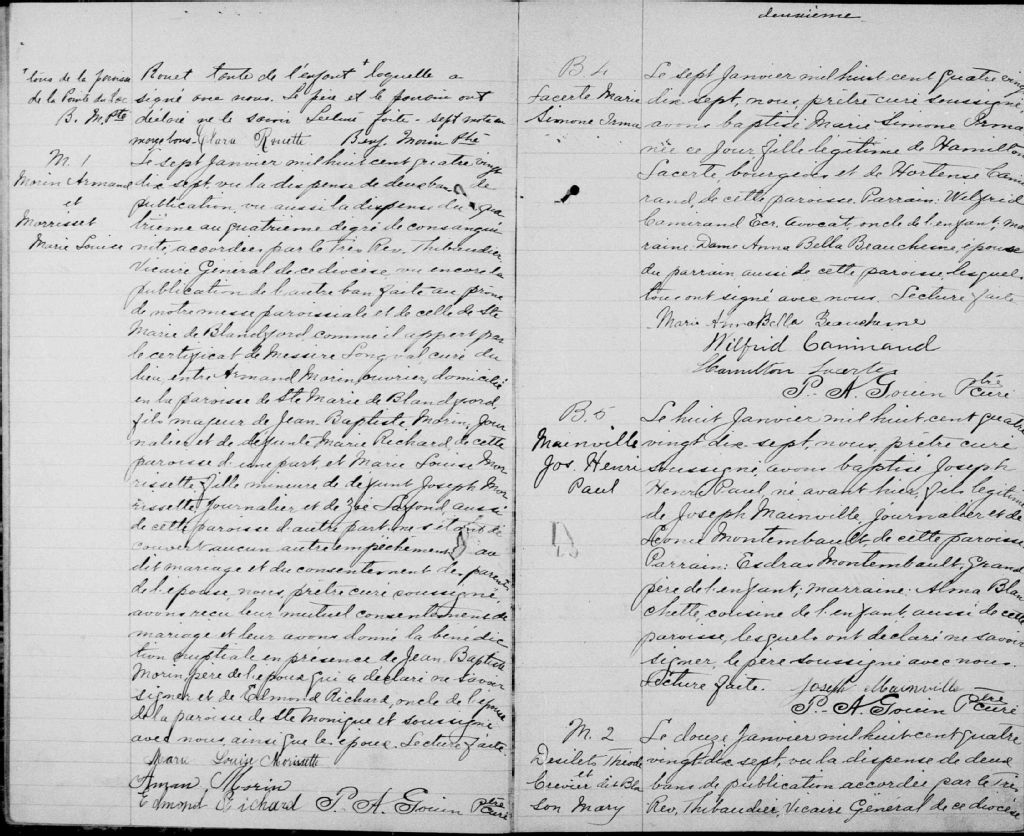 + tous de la paroisse
de la Pointe du Lac
B. M. Ptre
Rouet tante de l'enfant + laquelle a
signé avec nous. Le père et le parrain ont
déclaré ne le savoir Lecture faite - sept mots en
marge bons - Clara Rouette Benj. Morin Ptre
M. 1
Morin Armand
et
Morrisset
Marie Louise
Le sept Janvier mil huit cent quatre vingt
dix sept, vu la dispense de deux bans de
publication, vu aussi la dispense du qua
trième au quatrième degré de consangui
nité, accordées par le très Rev. Thibaudier
Vicaire Général de ce diocèse, vu encore la
publication de l'autre ban faite au prône
de notre messe paroissiale et de celle de Ste
Marie de Blandford, comme il appert par
le certificat de Messire Longval curé du
lieu, entre Armand Morin, ouvrier, domicilié
en la paroisse de Ste Marie de Blandford,
fils majeur de Jean-Baptiste Morin, Jour
nalier et de défunte Marie Richard de cette
paroisse d'une part, et Marie Louise Mor
rissette, fille mineure de défunt Joseph Mor
rissette, Journalier et de Zoé Lafond, aussi
de cette paroisse d'autre part, ne s'étant dé
couvert aucun autre empêchement au
dit mariage et du consentement des parents
de l'épouse, nous, prêtre curé soussigné,
avons reçu leur mutuel consentement de
mariage et leur avons donné la bénédic
tion nuptiale en présence de Jean-Baptiste
Morin, père de l'époux qui a déclaré ne savoir
signer et de Edmond Richard, oncle de l'épouse
de la paroisse de Ste Monique et soussigné
avec nous, ainsi que les époux. Lecture faite.
Marie Louise Morissette
Aman Morin
Edmond Richard P. A. Gouin Ptre curé
deuxième
B. 4
Lacerte Marie
Simone Irma
Le sept Janvier mil huit cent quatre vingt
dix sept, nous, prêtre curé soussigné,
avons baptisé Marie Simone Irma
née ce jour, fille légitime de Hamilton
Lacerte, bourgeois et de Hortense Cami
rand, de cette paroisse. Parrain: Wilfrid
Camirand Ecr. Avocat, oncle de l'enfant; mar
raine, Dame Anna Bella Beauchesne, épouse
du parrain aussi de cette paroisse, lesquels
tous ont signé avec nous. Lecture faite
Marie Anna Bella Beauchesne
Wilfrid Camirand
Hamilton Lacerte
P. A. Gouin Ptre curé
B. 5
Mainville
Jos. Henri
Paul
Le huit Janvier mil huit cent quatre
vingt dix sept, nous, prêtre curé
soussigné avons baptisé Joseph
Henri Paul, né avant hier, fils légitime
de Joseph Mainville, Journalier et de
Léonie Montembault de cette paroisse
Parrain: Esdras Montembault, Grand
père de l'enfant; marraine: Alma Blan
chette, cousine de l'enfant, aussi de cette
paroisse, lesquels ont déclaré ne savoir
signer, le père soussigné avec nous.
Lecture faite. Joseph Mainville
P. A. Gouin Ptre curé
M. 2
Desilets Théode
et
Crevier dit Blan
son Mary
Le douze Janvier mil huit cent quatre
vingt dix sept, vu la dispense de deux
bans de publication accordée par le Très
Rev. Thibaudier, Vicaire Général de ce diocèse